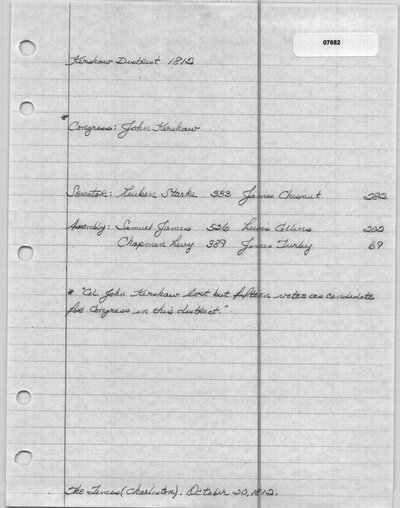 07682
Kershaw District 1812
* Congress: John Kershaw
Senator: Reuben Starke 333 James Chesnut 282
Assembly: Samuel James 526 Lewis Collins 202
Chapman Levy 389 James Turley 69
* "Col. John Kershaw lost but fifteen votes as candidate
for Congress in this district."
The Times (Charleston). October 20, 1812.